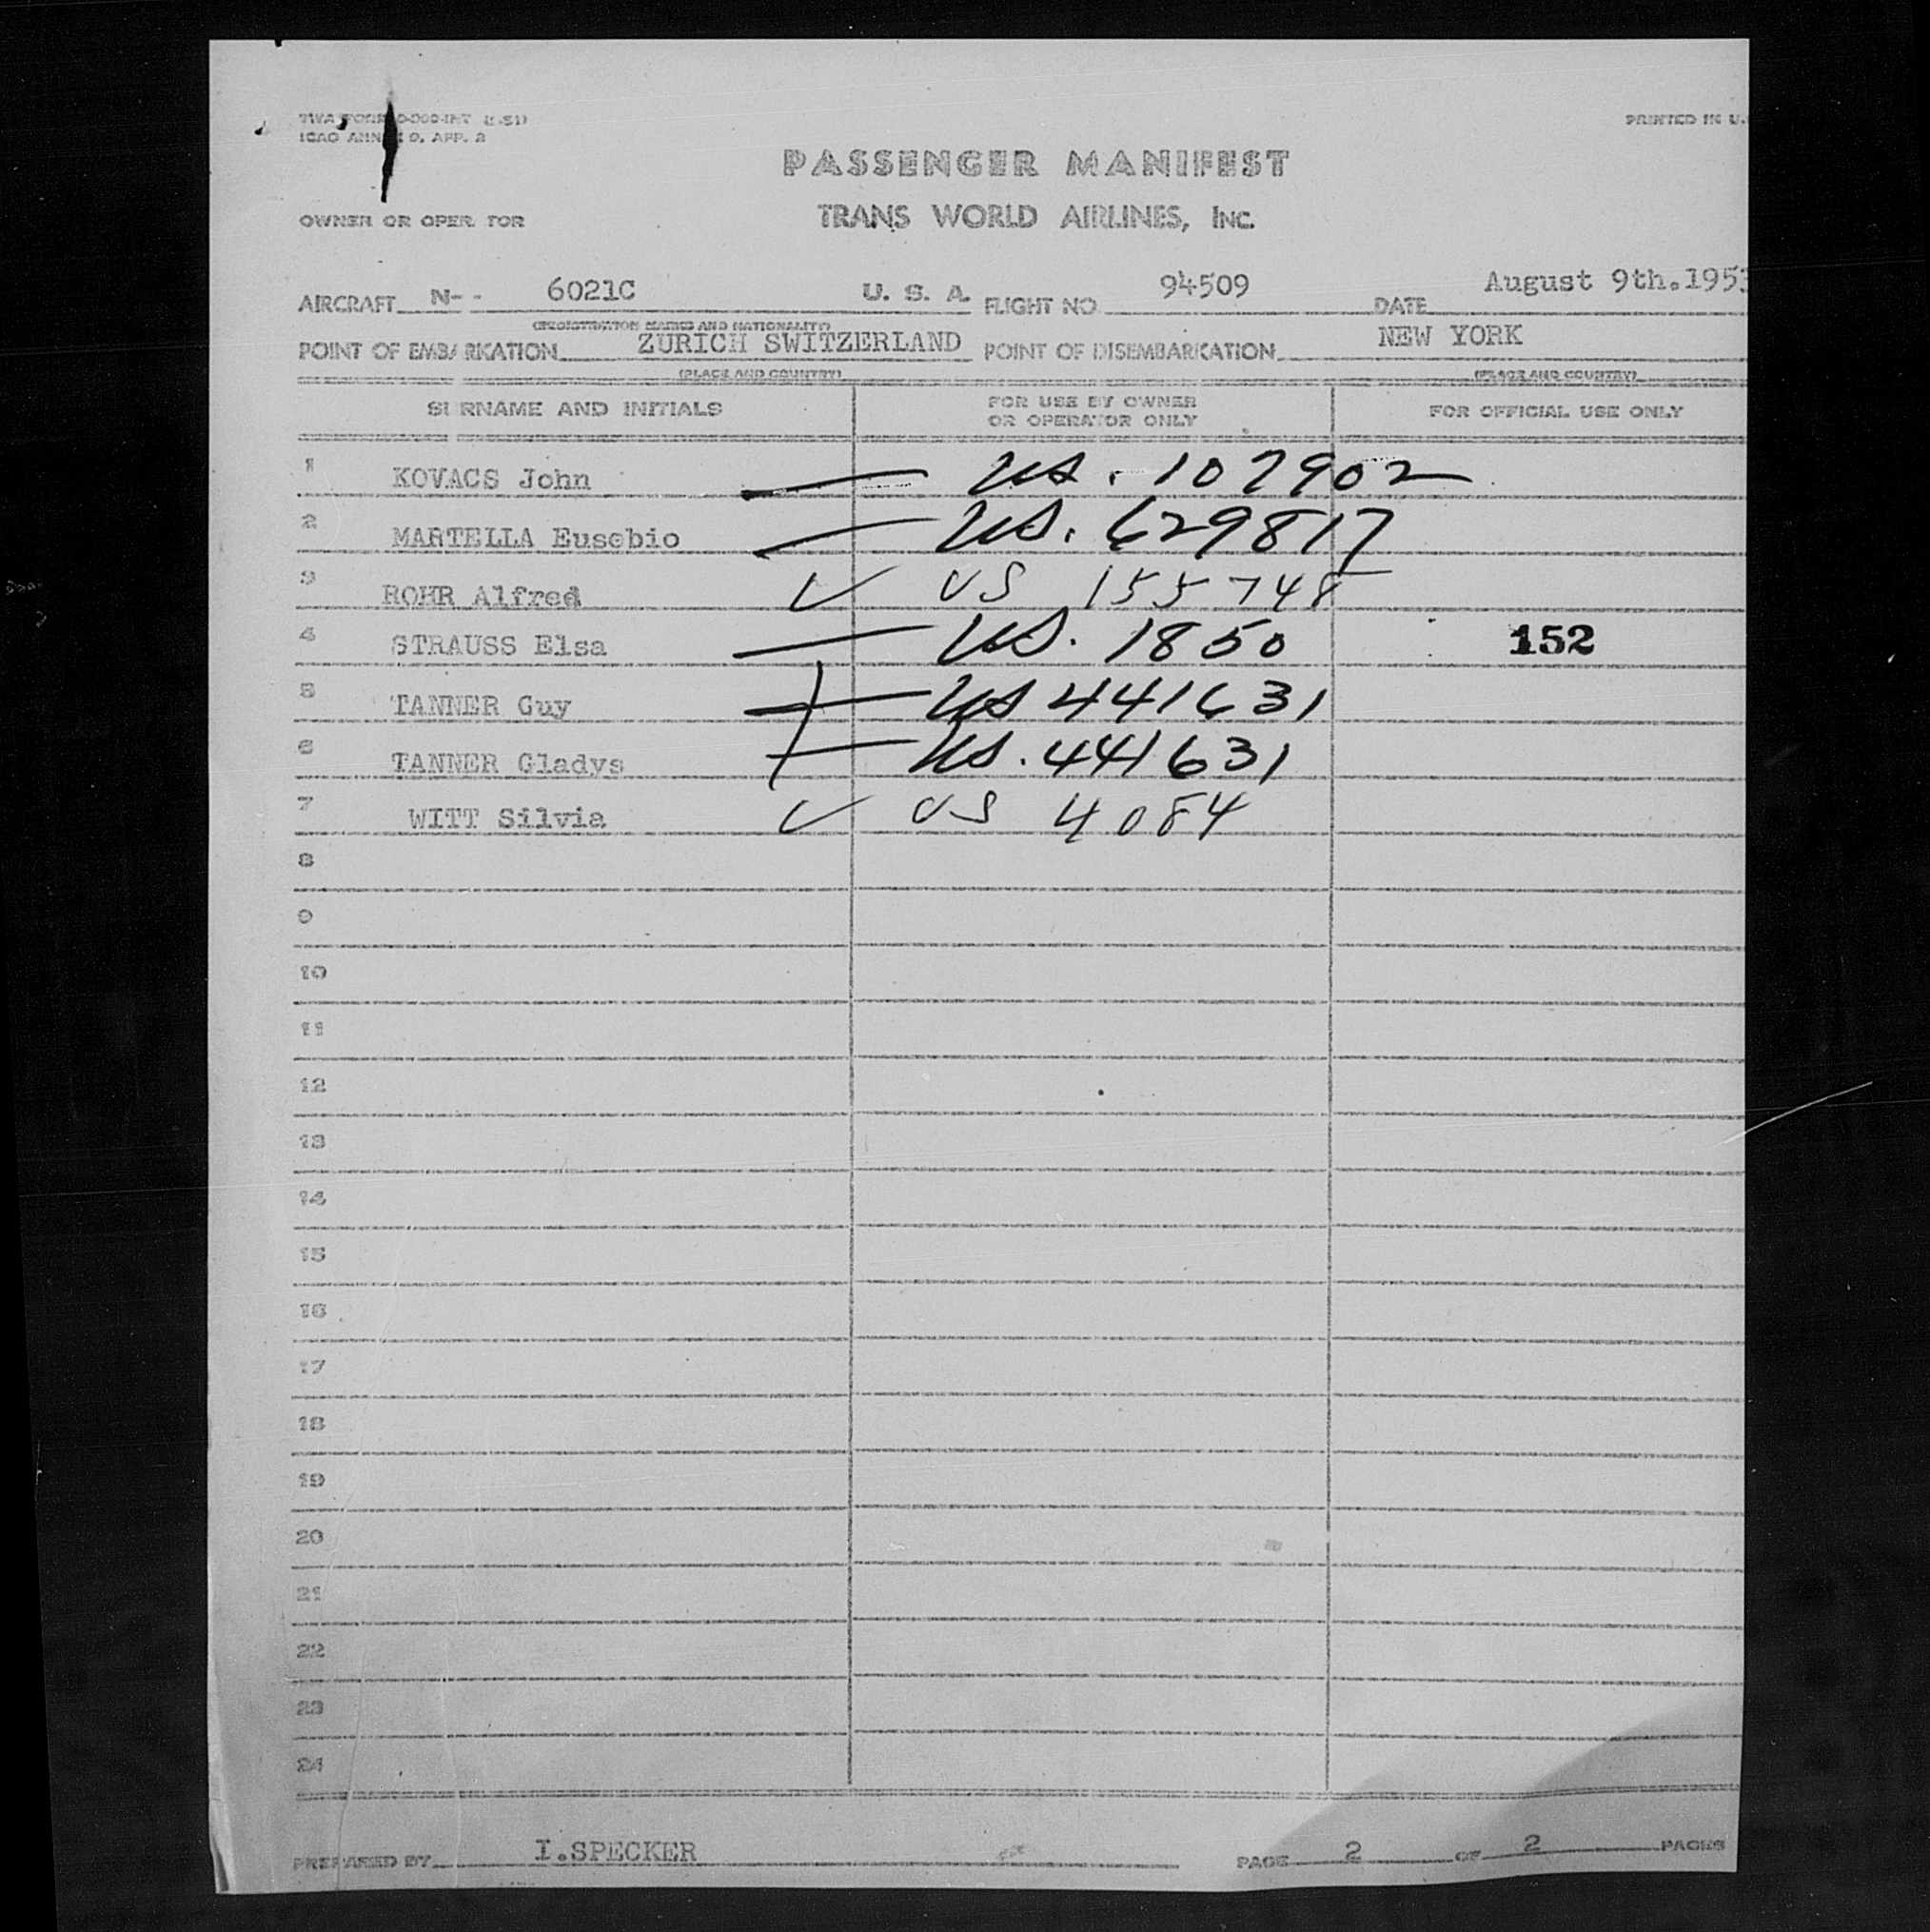 ICAO ANNEX 9, APP. 2
PRINTED IN U.
PASSENGER MANIFEST
OWNER OR OPER TOR
TRANS WORLD AIRLINES, INC.
AIRCRAFT N- - 6021C U. S. A. FLIGHT NO 94509 DATE August 9th.1953
(REGISTRATION MARKS AND NATIONALITY)
POINT OF EMBARKATION ZURICH SWITZERLAND POINT OF DISEMBARKATION NEW YORK
(PLACE AND COUNTRY) (PLACE AND COUNTRY)
SURNAME AND INITIALS FOR USE BY OWNER OR OPERATOR ONLY FOR OFFICIAL USE ONLY
1 KOVACS John — US. 107902
2 MARTELLA Eusebio — US. 629817
3 ROHR Alfred ✓ US 155748
4 STRAUSS Elsa — US. 1850 152
5 TANNER Guy — US 441631
6 TANNER Gladys — US. 441631
7 WITT Silvia ✓ US 4084
8
9
10
11
12
13
14
15
16
17
18
19
20
21
22
23
24
PREPARED BY I.SPECKER PAGE 2 OF 2 PAGES